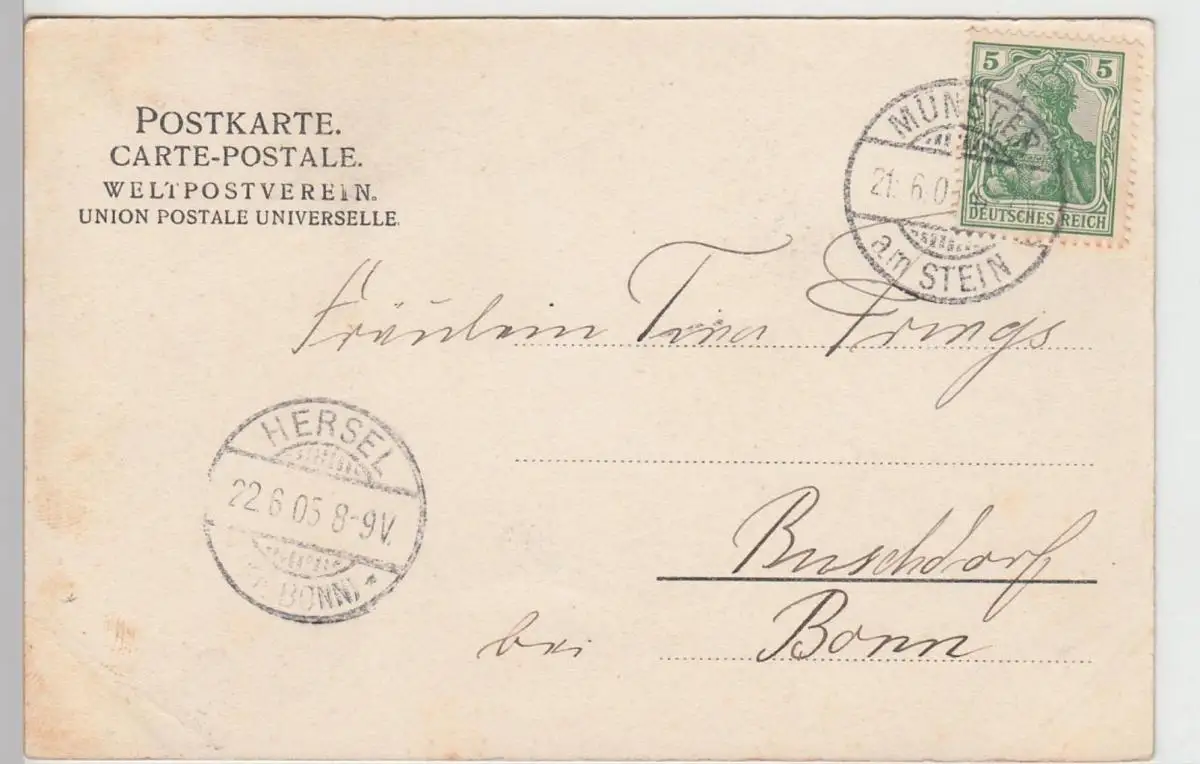 POSTKARTE.
CARTE-POSTALE.
WELTPOSTVEREIN.
UNION POSTALE UNIVERSELLE.
5 5
DEUTSCHES REICH
MÜNSTER
21. 6. 0
am STEIN
Fräulein Tina Frings
HERSEL
22.6.05 8-9V.
BONN) *
Buschdorf
bei Bonn